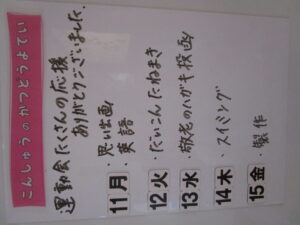 こんしゅうのかつどうよてい
運動会たくさんの応援
ありがとうございました。
11月
・思い出画
・英語
12火
・だいこんたねまき
13水
・敬老のハガキ投函
14木
・スイミング
15金
・製作